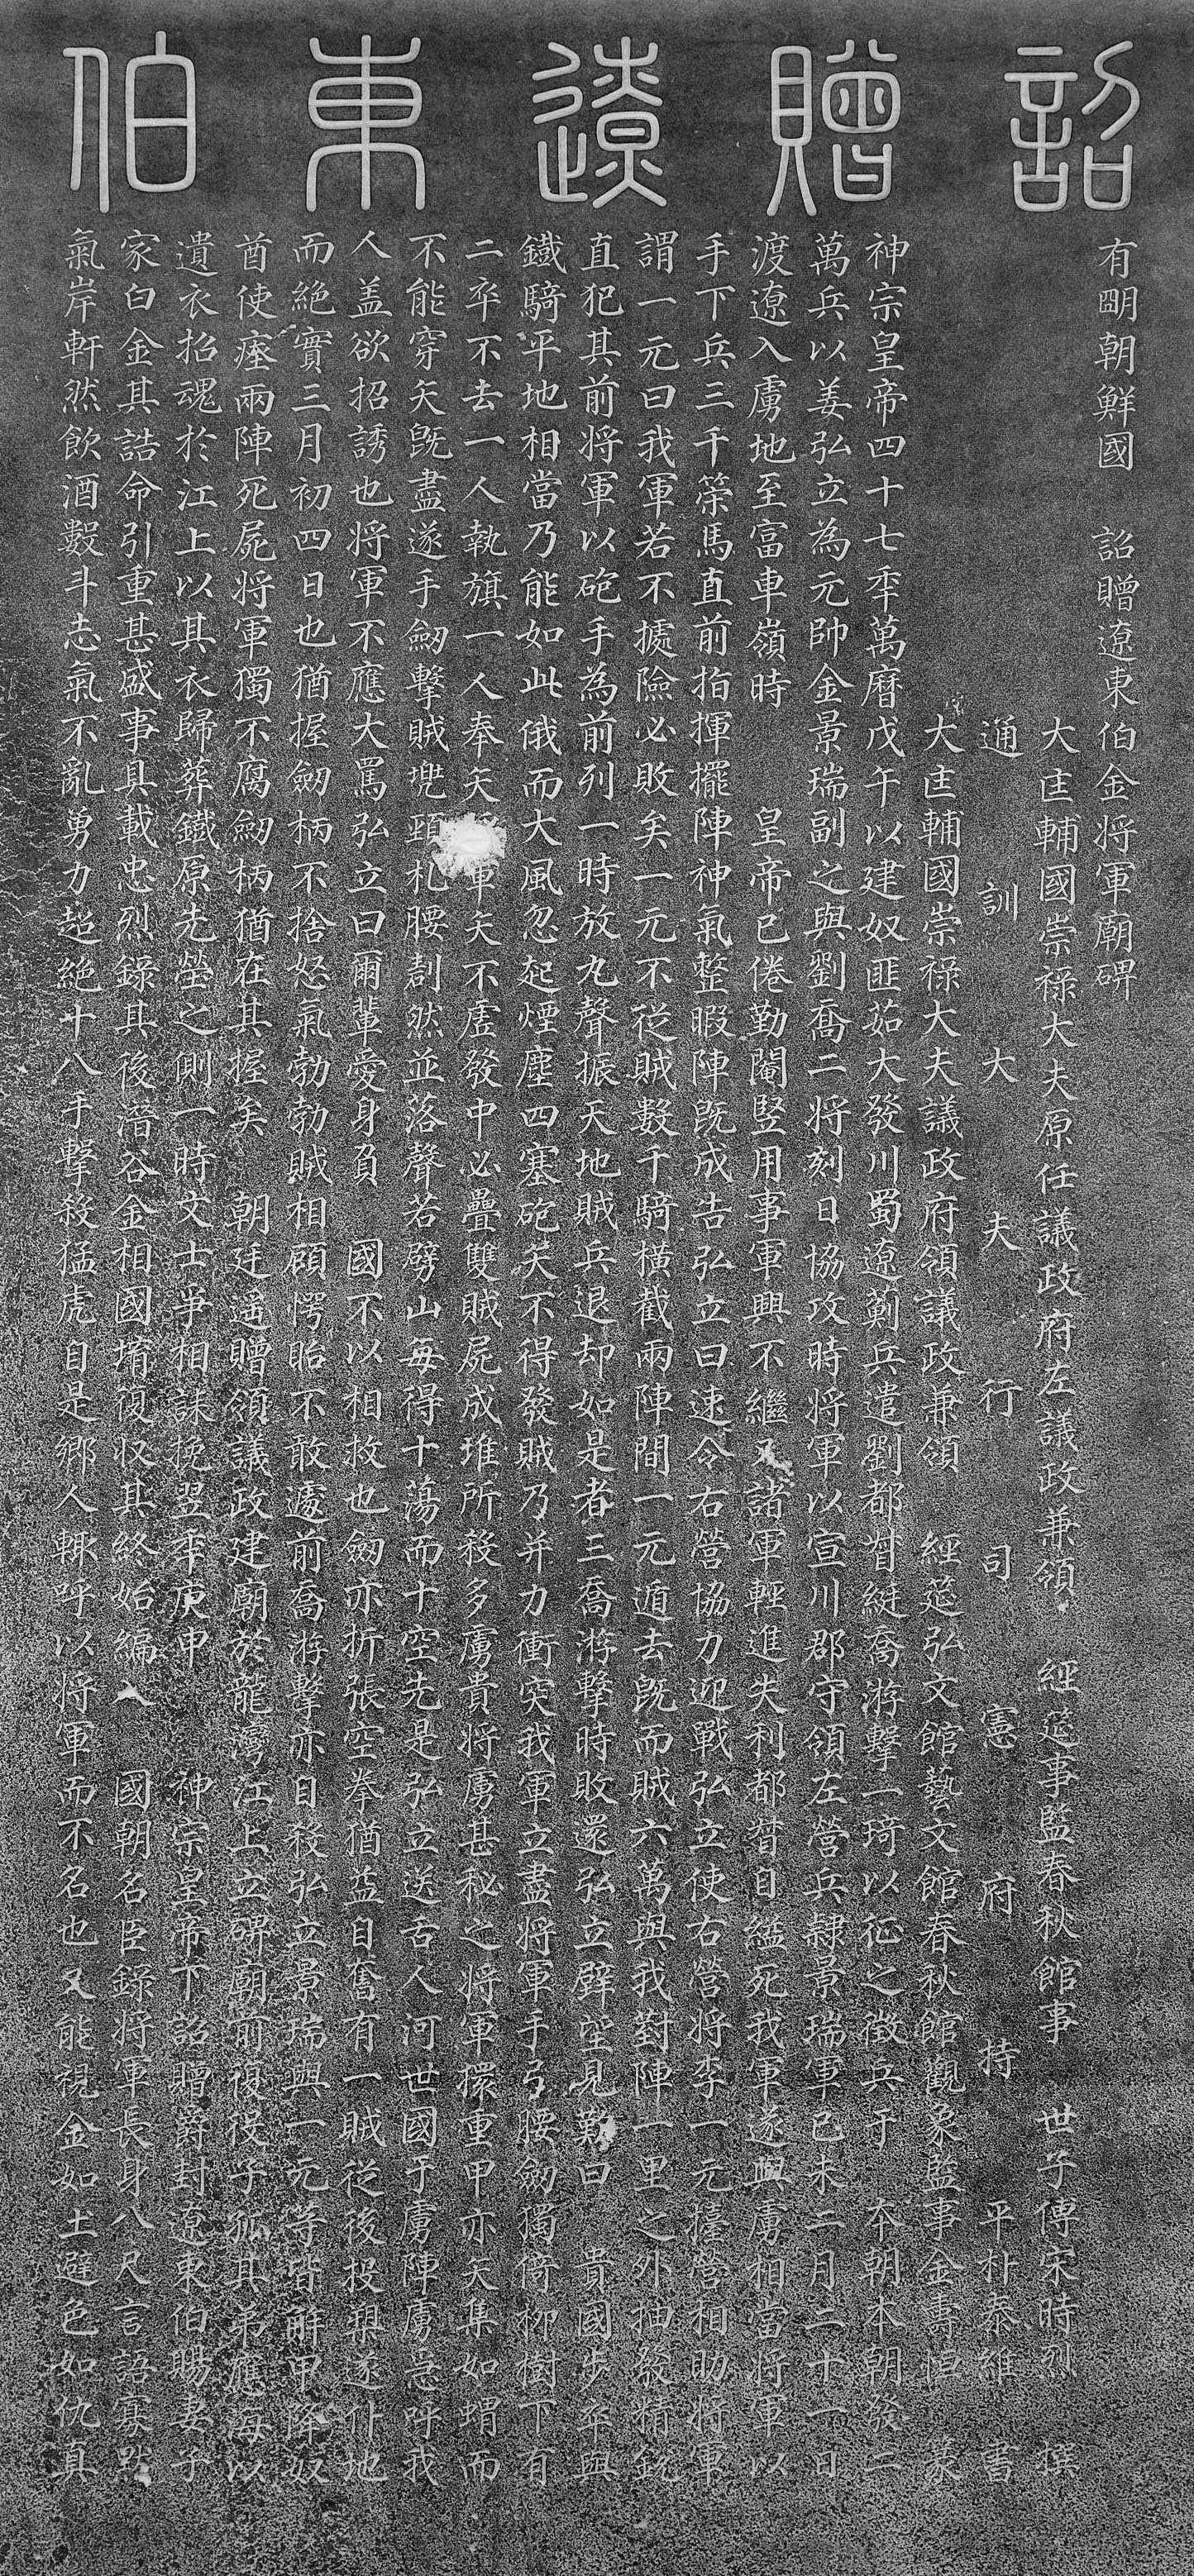 詔贈遼東伯
有明朝鮮國　詔贈遼東伯金将軍廟碑
大匡輔國崇禄大夫原任議政府左議政兼領　經筵事監春秋館事　世子傅宋時烈　撰
通訓大夫行司憲府持平朴泰維　書
大匡輔國崇禄大夫議政府領議政兼領　經筵弘文館藝文館春秋館觀象監事金壽恒　篆
神宗皇帝四十七秊萬曆戊午以建奴匪茹大發川蜀遼薊兵遣劉都督綎喬游擊一琦以征之徵兵于　本朝本朝發二
萬兵以姜弘立為元帥金景瑞副之與劉喬二将刻日協攻時将軍以宣川郡守領左營兵隷景瑞軍已未二月二十一日
渡遼入虜地至富車嶺時　皇帝已倦勤閹竪用事軍興不繼又諸軍輕進失利都督自縊死我軍遂與虜相當将軍以
手下兵三千策馬直前指揮擺陣神氣整暇陣旣成告弘立曰速令右營協力迎戰弘立使右營将李一元擡營相助将軍
謂一元曰我軍若不據險必敗矣一元不從賊數千騎横截兩陣間一元遁去旣而賊六萬與我對陣一里之外抽發精銳
直犯其前将軍以砲手為前列一時放丸聲振天地賊兵退却如是者三喬游擊時敗還弘立壁望見歎曰　貴國步卒與
鐵騎平地相當乃能如此俄而大風忽起煙塵四塞砲矢不得發賊乃并力衝突我軍立盡将軍手弓腰劒獨倚柳樹下有
二卒不去一人執旗一人奉矢軍矢不虛發中必疊雙賊屍成堆所殺多虜貴将虜甚秘之将軍擐重甲亦矢集如蝟而
不能穿矢旣盡遂手劒擊賊兠頸札腰割然並落聲若劈山每得十蕩而十空先是弘立送舌人河世國于虜陣虜急呼我
人盖欲招誘也将軍不應大罵弘立曰爾輩愛身負　國不以相救也劒亦折張空拳猶益自奮有一賊從後投槊遂仆地
而絶實三月初四日也猶握劒柄不捨怒氣勃勃賊相顧愕眙不敢遽前喬游擊亦自殺弘立景瑞與一元等皆解甲降奴
酋使瘞兩陣死屍将軍獨不腐劒柄猶在其握矣　朝廷遥贈領議政建廟於龍灣江上立碑廟前復役子孤其弟應海以
遺衣招魂於江上以其衣歸葬鐵原先塋之側一時文士爭相誄挽翌秊庚申　神宗皇帝下詔贈爵封遼東伯賜妻子
家白金其誥命引重甚盛事具載忠烈錄其後潛谷金相國堉復収其終始編入　國朝名臣錄将軍長身八尺言語寡默
氣岸軒然飲酒數斗志氣不亂勇力超絶十八手擊殺猛虎自是郷人輒呼以将軍而不名也又能視金如土避色如仇真